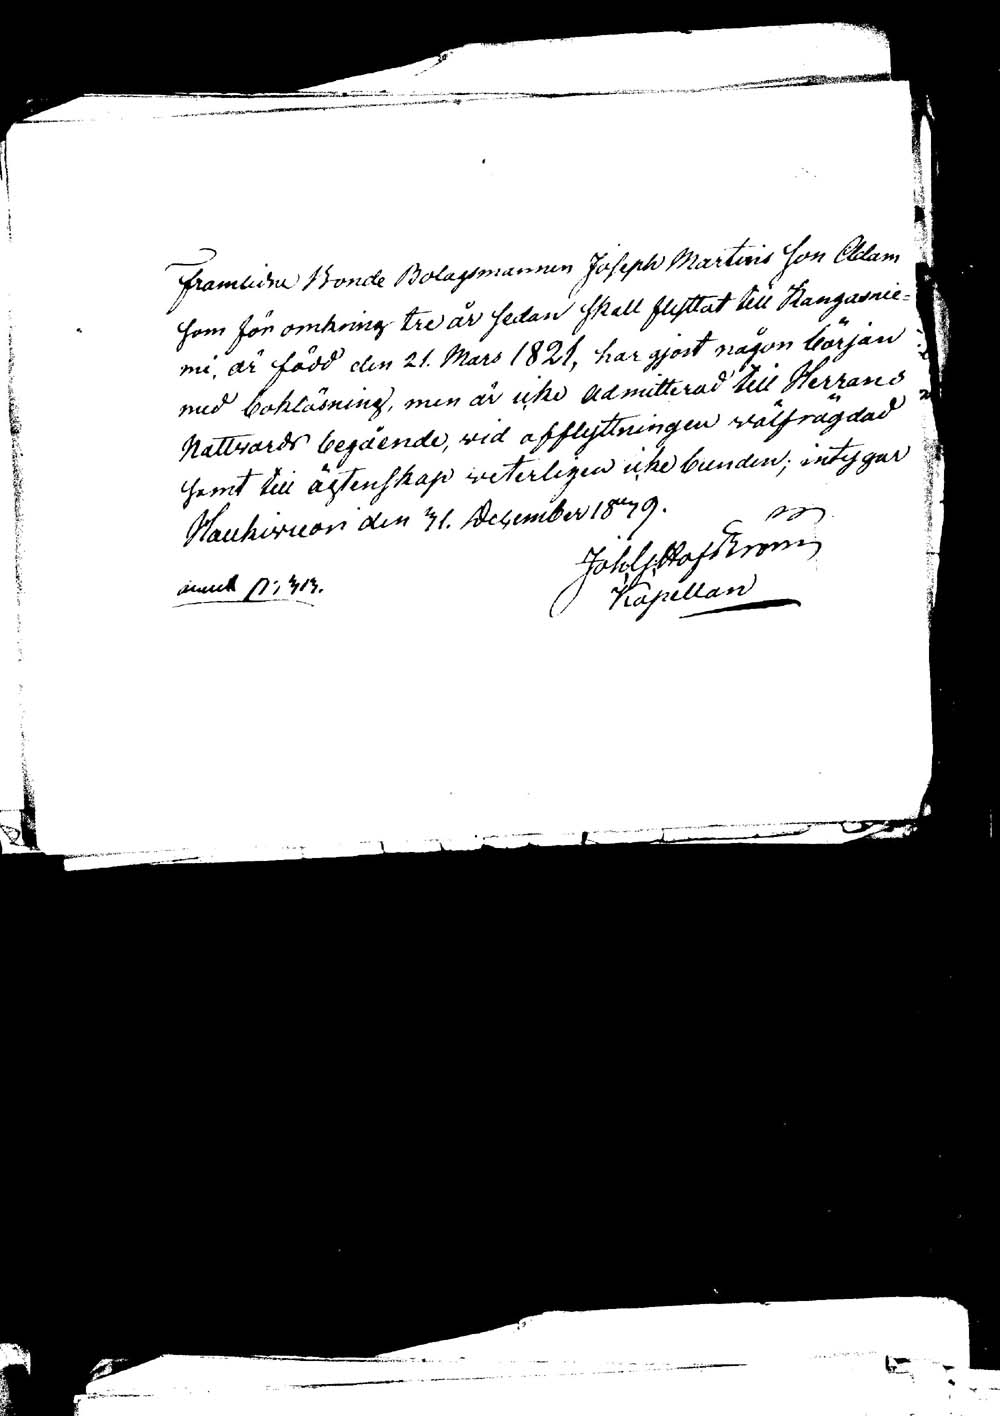 Framlidne Bonde Bolagsmannen Joseph Martins Son Adam
som för omkring tre år sedan skall flyttat till Kangasnie=
mi, är född den 21. Mars 1821, har gjort någon början
med bokläsning, men är icke admitterad till Herrans
Nattvards begående, wid afflyttningen wälfrägdad
samt till ägtenskap veterligen icke bunden; intygar
Haukivuori den 31. December 1839.
Joh. G. Hofström
Kapellan
p: 313.